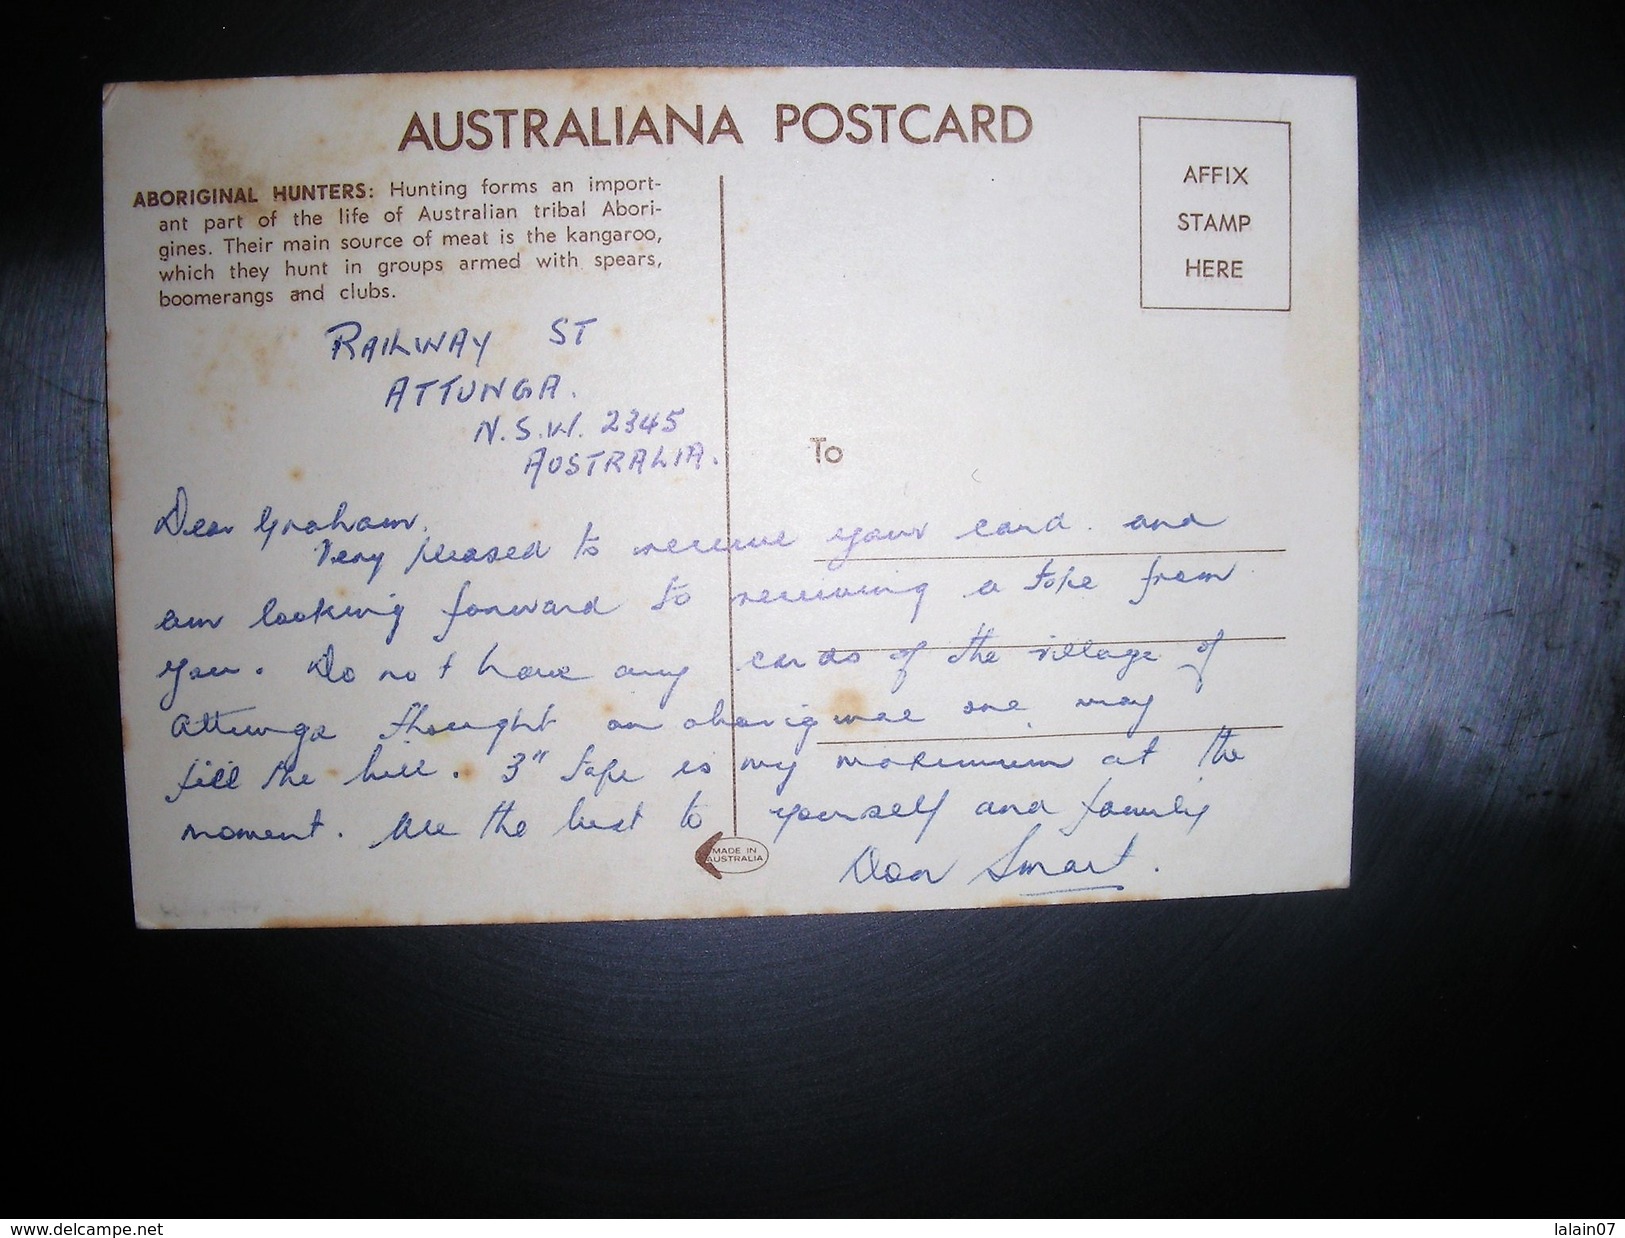 AUSTRALIANA POSTCARD
AFFIX
STAMP
HERE
ABORIGINAL HUNTERS: Hunting forms an import-
ant part of the life of Australian tribal Abori-
gines. Their main source of meat is the kangaroo,
which they hunt in groups armed with spears,
boomerangs and clubs.
RAILWAY ST
ATTUNGA.
N.S.W. 2345
AUSTRALIA.
To
Dear Graham,
Very pleased to receive your card and
am looking forward to receiving a tape from
you. Do not have any cards of the village of
Attunga thought an one may
fill the bill. 3" tape is my maximum at the
moment. All the best to yourself and family
Don Smart.
MADE IN
AUSTRALIA
www.delcampe.net
lalain07